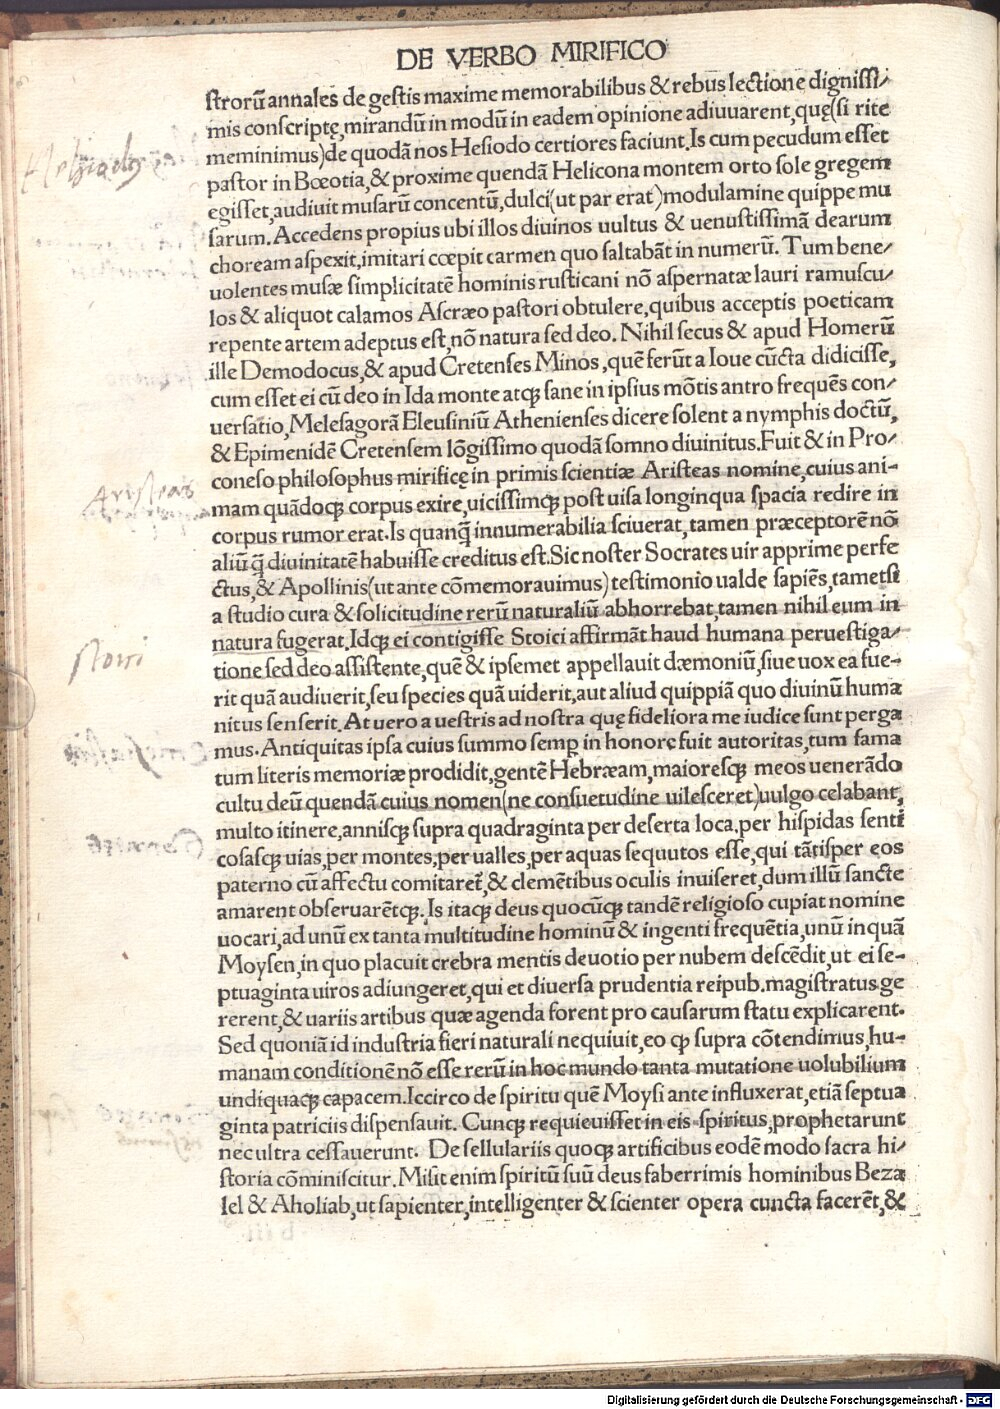 DE VERBO MIRIFICO
ſtrorū annales de geſtis maxime memorabilibus & rebus lectione digniſſi/
mis conſcriptę, mirandū in modū in eadem opinione adiuuarent, quę(ſi rite
meminimus)de quodā nos Heſiodo certiores faciunt. Is cum pecudum eſſet
paſtor in Bœotia, & proxime quendā Helicona montem orto ſole gregem
egiſſet, audiuit muſarū concentū, dulci(ut par erat)modulamine quippe mu
ſarum. Accedens propius ubi illos diuinos uultus & uenuſtiſſimā dearum
choream aſpexit, imitari cœpit carmen quo ſaltabāt in numerū. Tum bene/
uolentes muſæ ſimplicitatē hominis ruſticani nō aſpernatæ lauri ramuſcu/
los & aliquot calamos Aſcræo paſtori obtulere, quibus acceptis poeticam
repente artem adeptus eſt, nō natura ſed deo. Nihil ſecus & apud Homerū
ille Demodocus, & apud Cretenſes Minos, quē ferūt a Ioue cūcta didiciſſe,
cum eſſet ei cū deo in Ida monte atqꝫ ſane in ipſius mōtis antro frequēs con/
uerſatio, Meleſagorā Eleuſiniū Athenienſes dicere ſolent a nymphis doctū,
& Epimenidē Cretenſem lōgiſſimo quodā ſomno diuinitus. Fuit & in Pro/
coneſo philoſophus mirificę in primis ſcientiæ Ariſteas nomine, cuius ani-
mam quādoqꝫ corpus exire, uiciſſimqꝫ poſt uiſa longinqua ſpacia redire in
corpus rumor erat. Is quanq̄ innumerabilia ſciuerat, tamen præceptorē nō
aliū q̄ diuinitatē habuiſſe creditus eſt. Sic noſter Socrates uir apprime perfe
ctus, & Apollinis(ut ante cōmemorauimus)teſtimonio ualde ſapiēs, tametſi
a ſtudio cura & ſolicitudine rerū naturaliū abhorrebat, tamen nihil eum in
natura fugerat. Idqꝫ ei contigiſſe Stoici affirmāt haud humana perueſtiga-
tione ſed deo aſſiſtente, quē & ipſemet appellauit dæmoniū, ſiue uox ea fue-
rit quā audiuerit, ſeu ſpecies quā uiderit, aut aliud quippiā quo diuinū huma
nitus ſenſerit. At uero a ueſtris ad noſtra quę fideliora me iudice ſunt perga
mus. Antiquitas ipſa cuius ſummo ſemꝑ in honore fuit autoritas, tum fama
tum literis memoriæ prodidit, gentē Hebræam, maioreſqꝫ meos uenerādo
cultu deū quendā cuius nomen(ne conſuetudine uileſceret)uulgo celabant,
multo itinere, anniſqꝫ ſupra quadraginta per deſerta loca, per hiſpidas ſenti
coſaſqꝫ uias, per montes, per ualles, per aquas ſequutos eſſe, qui tātiſper eos
paterno cū affectu comitaret̄, & clemētibus oculis inuiſeret, dum illū ſancte
amarent obſeruarētqꝫ. Is itaqꝫ deus quocūqꝫ tandē religioſo cupiat nomine
uocari, ad unū ex tanta multitudine hominū & ingenti frequētia, unū inquā
Moyſen, in quo placuit crebra mentis deuotio per nubem deſcēdit, ut ei ſe-
ptuaginta uiros adiungeret, qui et diuerſa prudentia reipub. magiſtratus ge
rerent, & uariis artibus quæ agenda forent pro cauſarum ſtatu explicarent.
Sed quoniā id induſtria fieri naturali nequiuit, eo ꝙ ſupra cōtendimus, hu-
manam conditionē nō eſſe rerū in hoc mundo tanta mutatione uolubilium
undiquaqꝫ capacem. Iccirco de ſpiritu quē Moyſi ante influxerat, etiā ſeptua
ginta patriciis diſpenſauit. Cunqꝫ requieuiſſet in eis ſpiritus, prophetarunt
nec ultra ceſſauerunt. De ſellulariis quoqꝫ artificibus eodē modo ſacra hi/
ſtoria cōminiſcitur. Miſit enim ſpiritū ſuū deus faberrimis hominibus Beza
lel & Aholiab, ut ſapienter, intelligenter & ſcienter opera cuncta facerēt, &
Ariſteas
ſtoici
Digitalisierung gefördert durch die Deutsche Forschungsgemeinschaft - DFG